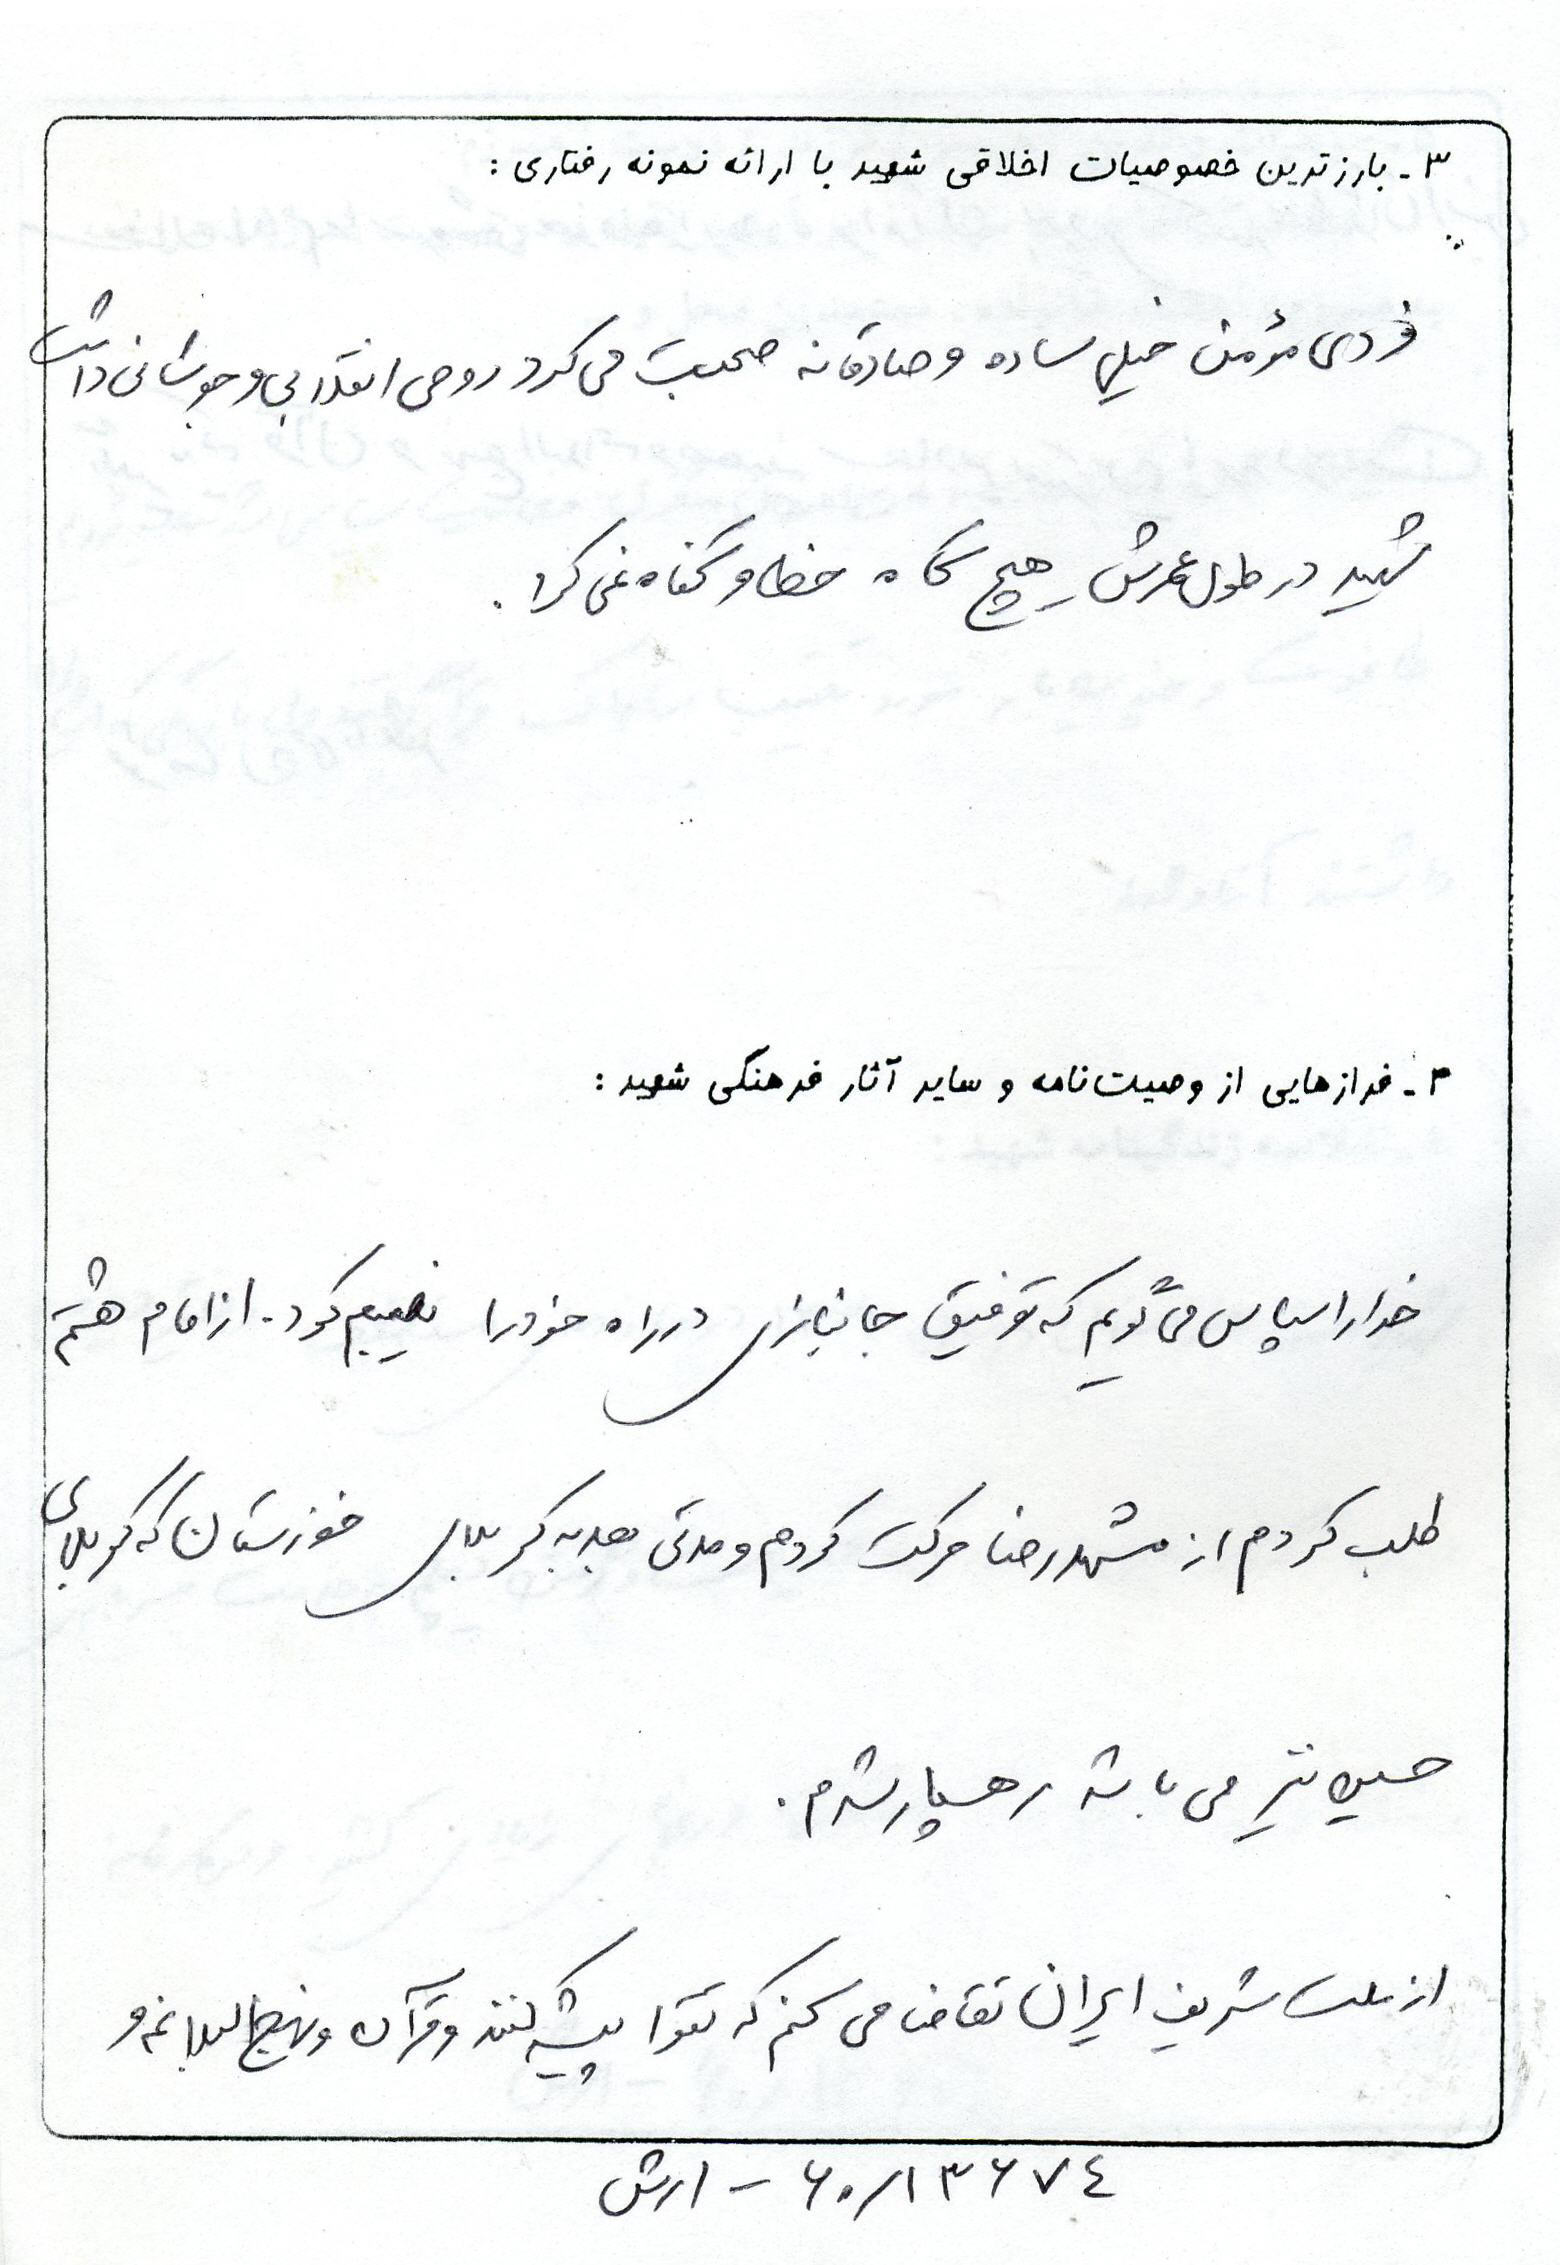 ۳ـ بارزترین خصوصیات اخلاقی شهید با ارائه نمونه رفتاری :
فردی مؤمن خیلی ساده و صادقانه صحبت می کرد روحی انقلابی و جوشانی داشت
شهید در طول عمرش هیچ گاه خطا و گناه نمی کرد .
۴ـ فرازهایی از وصیت‌نامه و سایر آثار فرهنگی شهید :
خدا را سپاس می گویم که توفیق جانبازی در راه خود را نصیبم کرد . از امام هشتم
طلب کردم از مشهد رضا حرکت کردم و مدتی بعد به کربلای خوزستان که کربلای
حسینی نیز می باشد رهسپار شدم .
از ملت شریف ایران تقاضا می کنم که تقوا پیشه کنند و قرآن و نهج البلاغه و
۶۰/۱۳۶۷۴ – ارش